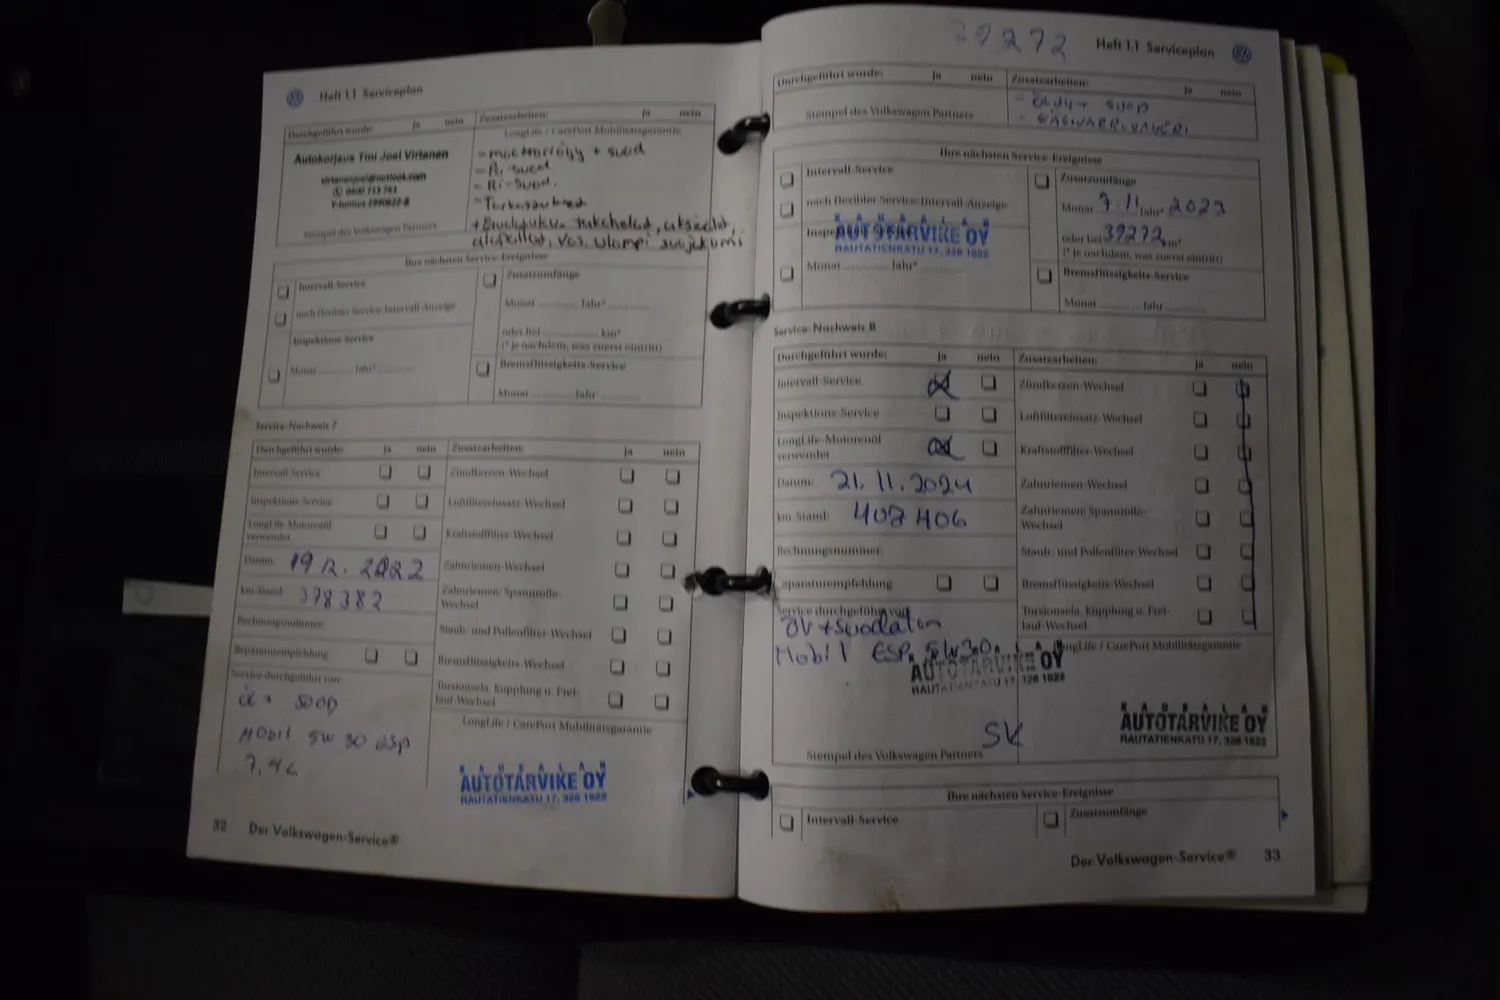 Heft 1.1 Serviceplan
Durchgeführt wurde: ja nein
Zusatzarbeiten: ja nein
LongLife / CarePort Mobilitätsgarantie
Autokorjaus Tmi Joel Virtanen
virtanenjoel@outlook.com
0400 713 763
- moottoriöljy + suod
- Ri-suod.
Stempel des Volkswagen Partners
Ihre nächsten Service-Ereignisse
Intervall-Service
nach flexibler Service-Intervall-Anzeige
Inspektions-Service
Monat ............ Jahr* ............
Zusatzumfänge
Monat ............ Jahr* ............
oder bei ............ km*
(* je nachdem, was zuerst eintritt)
Bremsflüssigkeits-Service
Monat ............ Jahr ............
Service-Nachweis 7
Durchgeführt wurde: ja nein
Intervall-Service
Inspektions-Service
LongLife-Motorenöl
verwendet
Datum: 19 12. 2022
km-Stand: 378382
Rechnungsnummer:
Reparaturempfehlung
Service durchgeführt von:
MOBIL 5W 30 ESP
7,4L
Zusatzarbeiten: ja nein
Zündkerzen-Wechsel
Luftfiltereinsatz-Wechsel
Kraftstofffilter-Wechsel
Zahnriemen-Wechsel
Zahnriemen/Spannrolle-
Wechsel
Staub- und Pollenfilter-Wechsel
Bremsflüssigkeits-Wechsel
Torsionsela. Kupplung u. Frei-
lauf-Wechsel
LongLife / CarePort Mobilitätsgarantie
KAUSALAN
AUTOTARVIKE OY
RAUTATIENKATU 17, 326 1822
32 Der Volkswagen-Service®
Heft 1.1 Serviceplan
Durchgeführt wurde: ja nein
Zusatzarbeiten: ja nein
Stempel des Volkswagen Partners
Ihre nächsten Service-Ereignisse
Intervall-Service
nach flexibler Service-Intervall-Anzeige
KAUSALAN
AUTOTARVIKE OY
RAUTATIENKATU 17, 326 1822
Monat ............ Jahr* ............
Zusatzumfänge
Monat 7.11. Jahr* 2023
oder bei 39272 km*
(* je nachdem, was zuerst eintritt)
Bremsflüssigkeits-Service
Monat ............ Jahr ............
Service-Nachweis 8
Durchgeführt wurde: ja nein
Intervall-Service
Inspektions-Service
LongLife-Motorenöl
verwendet
Datum: 21.11.2024
km-Stand: 407406
Rechnungsnummer:
Reparaturempfehlung
Service durchgeführt von:
Mobil ESP 5W30
KAUSALAN
AUTOTARVIKE OY
RAUTATIENKATU 17, 326 1822
SK
Stempel des Volkswagen Partners
Zusatzarbeiten: ja nein
Zündkerzen-Wechsel
Luftfiltereinsatz-Wechsel
Kraftstofffilter-Wechsel
Zahnriemen-Wechsel
Zahnriemen/Spannrolle-
Wechsel
Staub- und Pollenfilter-Wechsel
Bremsflüssigkeits-Wechsel
Torsionsela. Kupplung u. Frei-
lauf-Wechsel
LongLife / CarePort Mobilitätsgarantie
KAUSALAN
AUTOTARVIKE OY
RAUTATIENKATU 17, 326 1822
Ihre nächsten Service-Ereignisse
Intervall-Service
Zusatzumfänge
Der Volkswagen-Service® 33